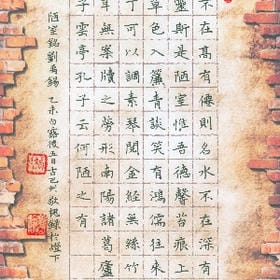 不在高有僊則名水不在深有
靈斯是陋室惟吾德馨苔痕上
草色入簾青談笑有鴻儒往來
丁可以調素琴閱金經無絲竹
耳無案牘之勞形南陽諸葛廬
子雲亭孔子云何陋之有
陋室銘劉禹錫乙未白露後五日古巴州敬楓錄於燈下